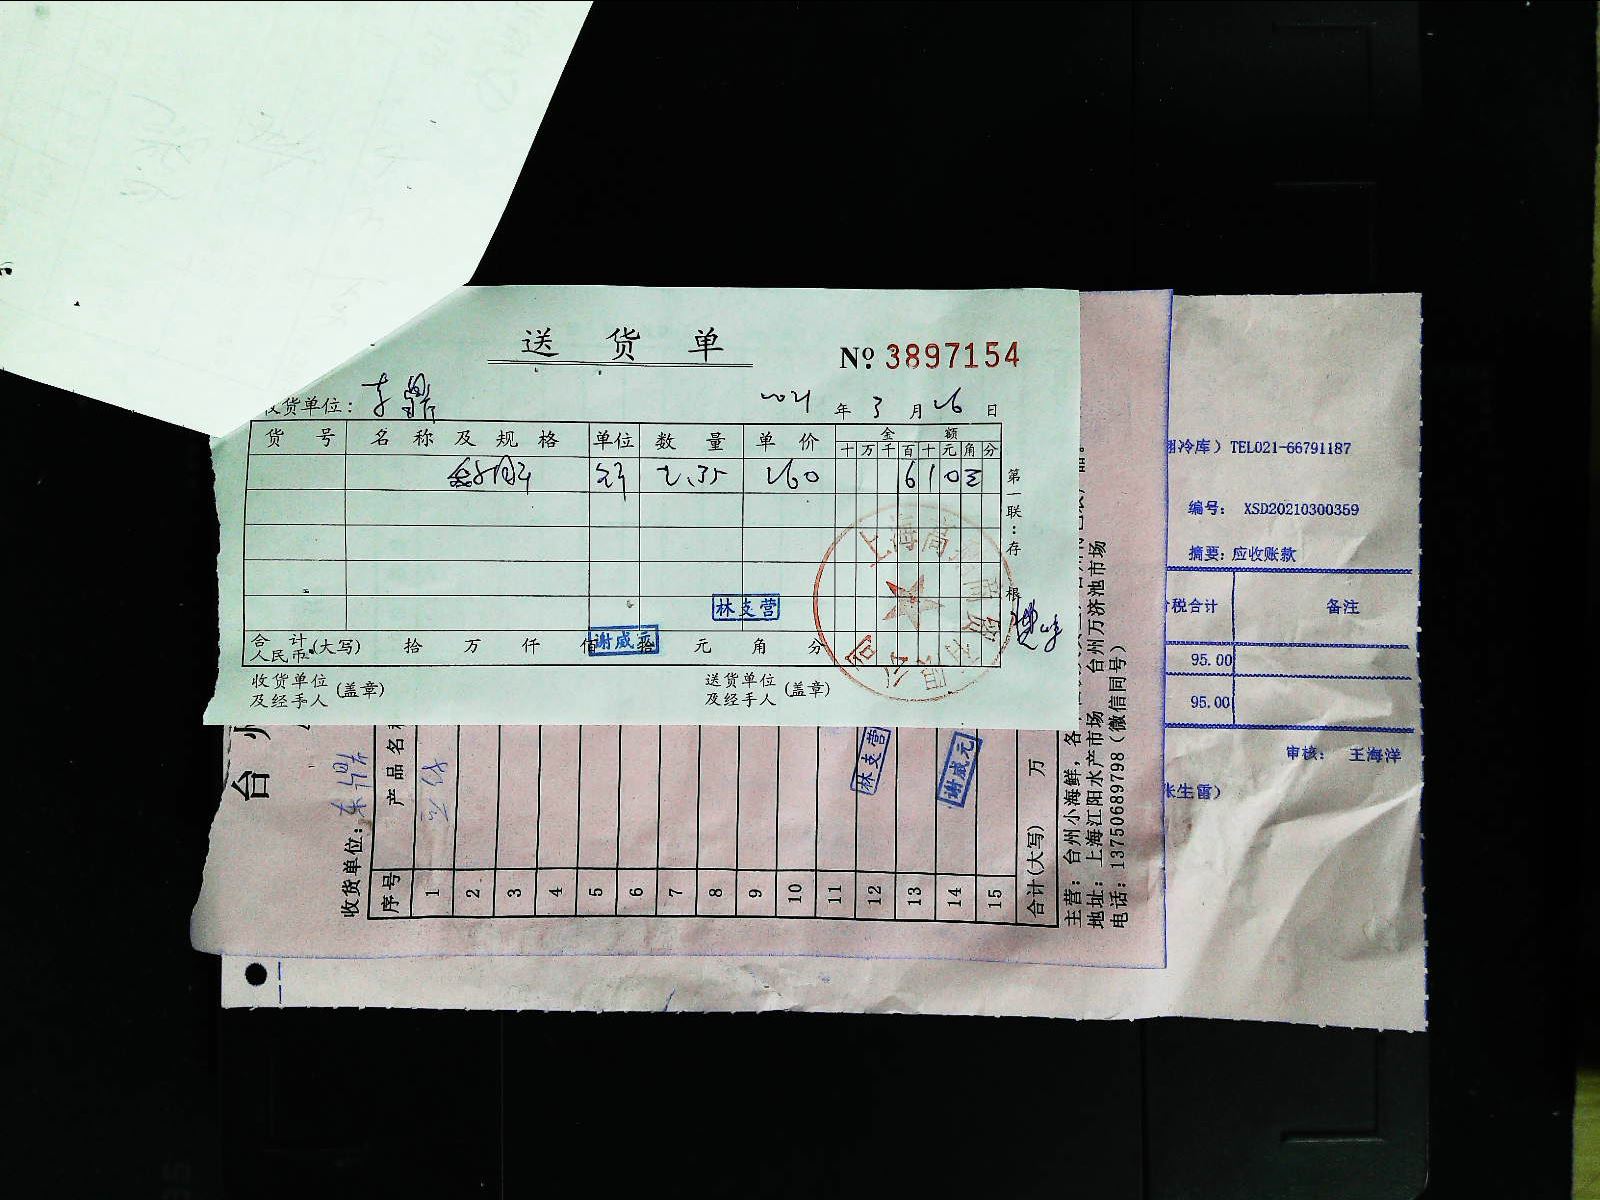 送 货 单
Nº 3897154
收货单位:
2021 年 3 月 26 日
货 号 名 称 及 规 格 单位 数 量 单 价 金 额
十 万 千 百 十 元 角 分
斤 2.35 260 6 1 0
第一联:存根
林支营
谢威元
合 计 人民币(大写) 拾 万 仟 佰 拾 元 角 分
收货单位及经手人(盖章) 送货单位及经手人(盖章)
上海
商贸有限公司
台
收货单位:
序号 产品名
1
2
3
4
5
6
7
8
9
10
11
12
13
14
15
林支营
谢威元
合计(大写) 万
主营:台州小海鲜,各
地址:上海江阳水产市场 台州万济池市场
电话:13750689798(微信同号)
冷库)TEL021-66791187
编号: XSD20210300359
摘要:应收账款
税合计 备注
95.00
95.00
审核: 王海洋
张生雷)